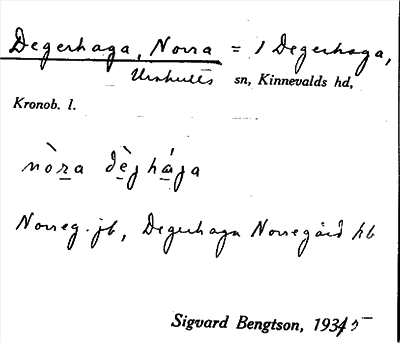 Degerhaga, Norra = 1 Degerhaga,
Urshults sn, Kinnevalds hd,
Kronob. l.
nòra dèjhága
Norreg. jb, Degerhaga Norregård hb
Sigvard Bengtson, 1935